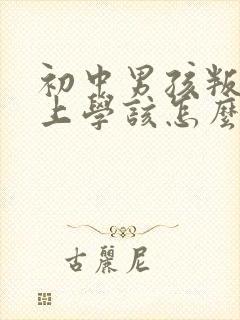 初中男孩叛
上學該怎麼
古麗尼